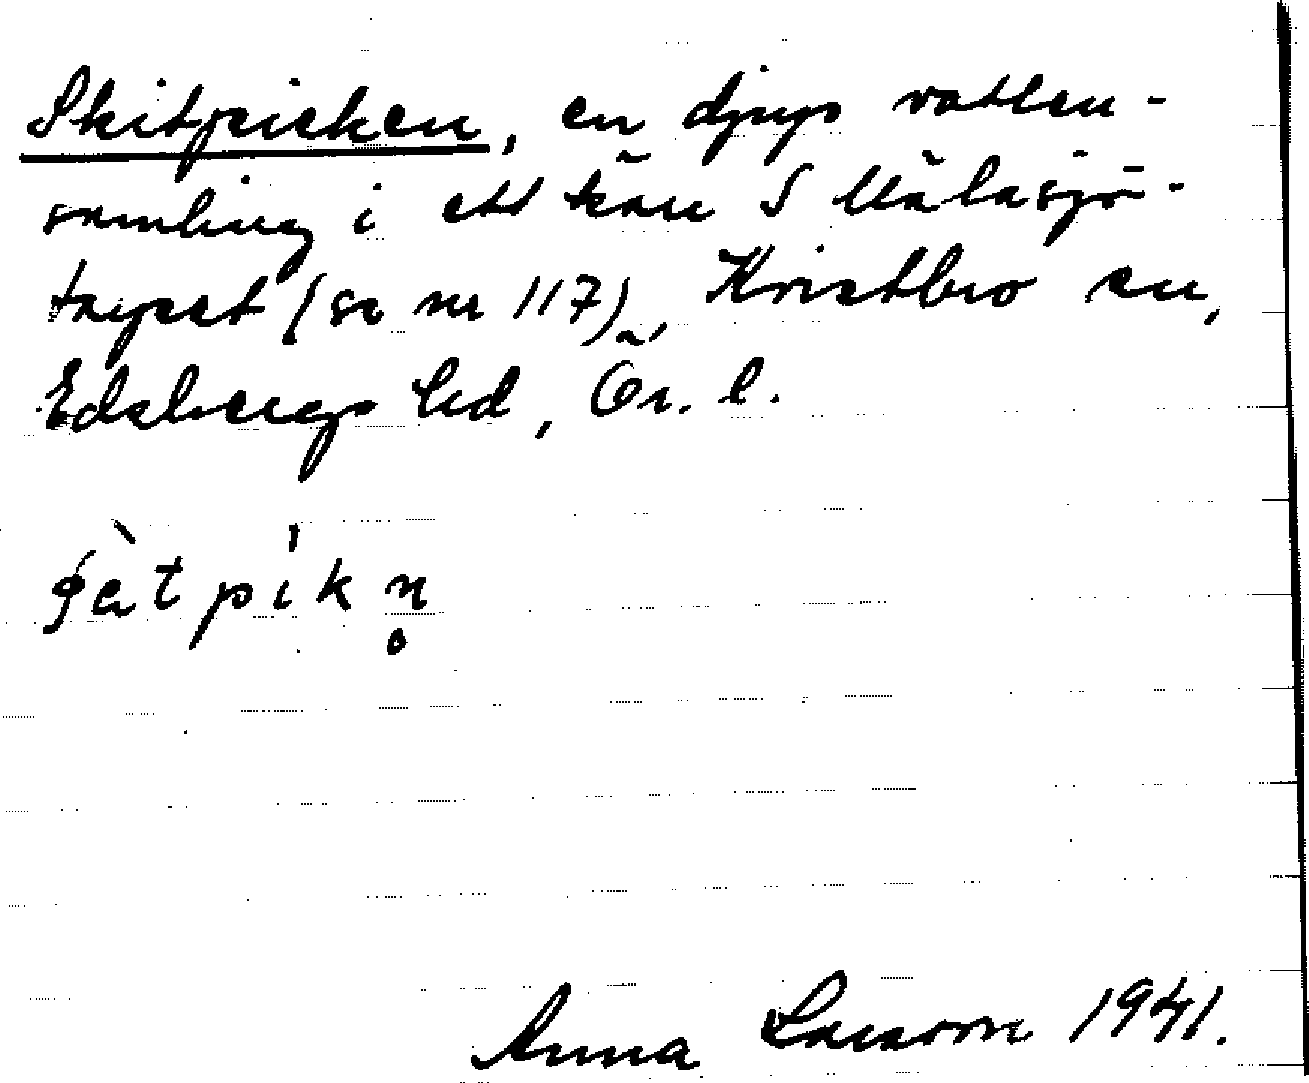 Skitpicken, en djup vatten-
samling i ett kärr S Målasjö-
torpet (se nr 117), Kvistbro sn,
Edsbergs hd, Ör. l.
Anna Larsson 1941.